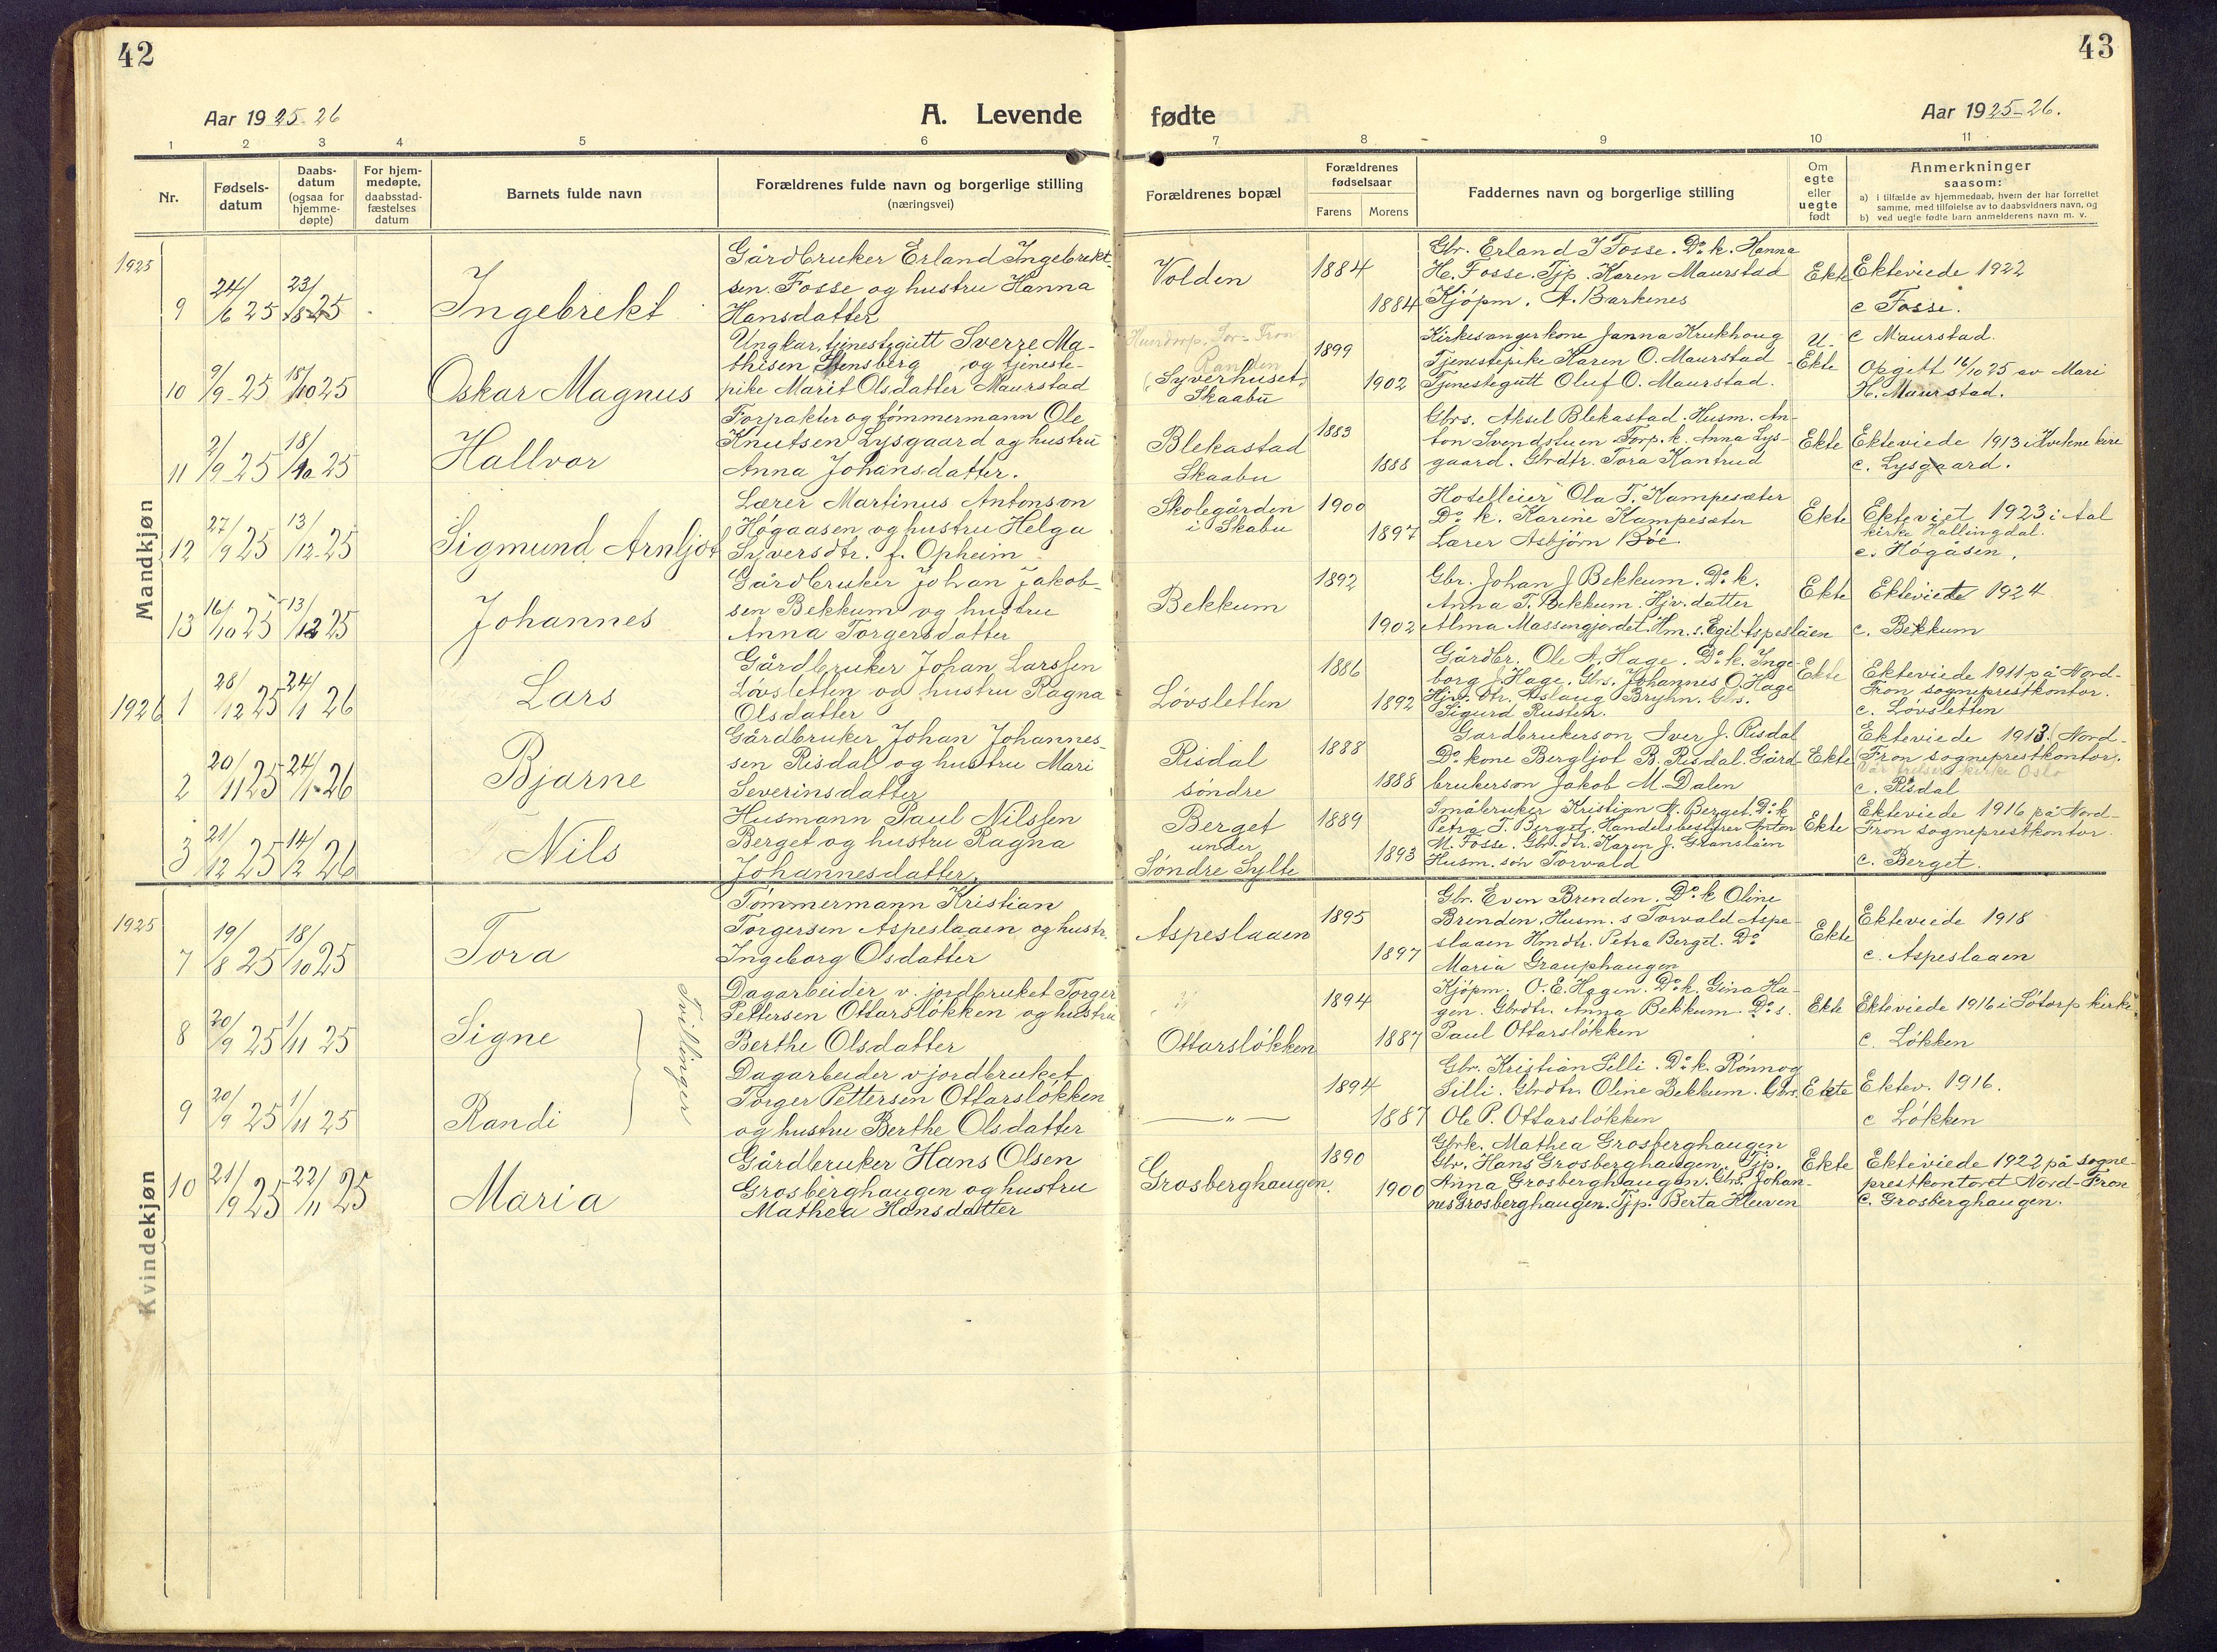 42
43
Aar 1925-26
A. Levende
fødte
Aar 1925-26.
1 2 3 4 5 6 7 8 9 10 11
Nr.
Fødsels-
datum
Daabs-
datum
(ogsaa for
hjemme-
døpte)
For hjem-
medøpte,
daabsstad-
fæstelses
datum
Barnets fulde navn
Forældrenes fulde navn og borgerlige stilling
(næringsvei)
Forældrenes bopæl
Forældrenes
fødselsaar
Farens Morens
Faddernes navn og borgerlige stilling
Om
egte
eller
uegte
født
Anmerkninger
saasom:
a) i tilfælde av hjemmedaab, hvem der har forrettet
samme, med tilføielse av to daabsvidners navn, og
b) ved uegte fødte barn anmelderens navn m. v.
Mandkjøn
1925
9
24/6 25
23/8 25
Ingebrekt
Gårdbruker Erland Ingebrekt-
sen Fosse og hustru Hanna
Hansdatter
Volden
1884
1884
Gbr. Erland I Fosse. Do k. Hanna
H. Fosse. Tjp. Karen Maurstad
Kjöpm. A. Barkenes
Ekte
Ekteviede 1922
c Fosse.
10
9/9-25
18/10 25
Oskar Magnus
Ungkar, tjenestegutt Sverre Ma-
thisen Stensberg, og tjeneste-
pike Marit Olsdatter Maurstad
Hundorp, Sør-Fron
(Syverhuset,
Skaabu
1899
1902
Kirkesangerkone Janna Krukhoug
Tjenestepike Karen O. Maurstad
Tjenestegutt Oluf O. Maurstad.
U-
Ekte
c Maurstad.
Opgitt 16/10 25 av Mari
H. Maurstad.
11
2/9-25
18/10 25
Hallvor
Forpakter og tömmermann Ole
Knutsen Lysgaard og hustru
Anna Johansdatter.
Blekastad
Skaabu
1883
1888
Gbrs. Aksel Blekastad. Husm. An-
ton Svendstuen Forp. k. Anna Lys-
gaard. Gbrdtr. Tora Kantrud
Ekte
Ekteviede 1913 i Kvikne kirke
c. Lysgaard.
12
27/9 25
13/12-25
Sigmund Arnljot
Lærer Martinus Antonson
Högaasen og hustru Helga
Syversdtr. f. Opheim
Skolegården
i Skabu
1900
1897
Hotelleier Ola T. Kampesæter
Do k. Karine Kampesæter
Lærer Asbjørn Böe.
Ekte
Ekteviet 1923 i Aal
kirke Hallingdal.
c. Högåsen.
13
16/10 25
13/12 25
Johannes
Gårdbruker Johan Jakob-
sen Bekkum og hustru
Anna Torgersdatter
Bekkum
1892
1902
Gbr. Johan J Bekkum. Do k.
Anna T. Bekkum. Hjv. datter
Alma Massengjordet. Hm. s. Egil Aspeslåen
Ekte
Ekteviede 1924
c. Bekkum
1926
1
28/12 25
24/1 26
Lars
Gårdbruker Johan Larssen
Lövsletten og hustru Ragna
Olsdatter
Lövsletten
1886
1892
Gårdbr. Ole A. Hage. Do k. Inge-
borg J. Hage. Gbs. Johannes O. Hage
Hjv. dtr. Aslaug Bryhn. Gbs.
Sigurd Rusten.
Ekte
Ekteviede 1911 på Nord-
Fron sogneprestkontor.
c. Lövsletten
2
20/11 25
24/1-26
Bjarne
Gårdbruker Johan Johannes-
sen Risdal og hustru Mari
Severinsdatter
Risdal
söndre
1888
1888
Gardbrukerson Iver J. Risdal
Do kone Bergljot B. Risdal. Gård-
brukerson Jakob M. Dalen
Ekte
Ekteviede 1913 (Nord-
Fron sogneprestkontor).
Vår frelsers kirke Oslo
c. Risdal
3
21/12 25
14/2 26
Nils
Husmann Paul Nilssen
Berget og hustru Ragna
Johannesdatter,
Berget
under
Söndre Sylte
1889
1893
Småbruker Kristian N. Berget. Do k
Petra T. Berget. Handelsbestyrer Anton
M. Fosse. Gbrdtr. Karen J. Granslåen
Husm. sön Torvald
Ekte
Ekteviede 1916 på Nord-
Fron sogneprestkontor.
c. Berget.
Kvindekjøn
1925
7
19/8 25
18/10 25
Tora
Tömmermann Kristian
Torgersen Aspeslaaen og hustr.
Ingeborg Olsdatter
Aspeslaaen
1895
1897
Gbr. Even Brenden. Do k Oline
Brenden. Husm. s Torvald Aspe-
slaaen Hmdtr. Petra Berget. Do
Maria Grauphaugen
Ekte
Ekteviede 1918
c. Aspeslaaen
8
20/9 25
1/11 25
Signe
Tvillinger
Dagarbeider v. jordbruket Torger
Pettersen Ottarslökken og hustru
Berthe Olsdatter
Ottarslökken
1894
1887
Kjöpm. O. E. Hagen. Do k. Gina Ha-
gen. Gbrdtr. Anna Bekkum. Do s.
Paul Ottarslökken
Ekte
Ekteviede 1916 i Sötorp kirke
c. Lökken
9
20/9 25
1/11 25
Randi
Dagarbeider v jordbruket
Torger Pettersen Ottarslökken
og hustru Berthe Olsdatter
— " —
1894
1887
Gbr. Kristian Silli. Do k. Rönnog
Silli. Gbrdtr. Oline Bekkum. Gbrs.
Ole P. Ottarslökken
Ekte
Ektev. 1916.
c Lökken
10
21/9 25
22/11 25
Maria
Gårdbruker Hans Olsen
Grosberghaugen og hustru
Mathea Hansdatter
Grosberghaugen.
1890
1900
Gbrk. Mathea Grosberghaugen
Gbr. Hans Grosberghaugen. Tjp.
Anna Grosberghaugen. Gbs. Johan-
nes Grosberghaugen. Tjp. Berta Kleiven
Ekte
Ekteviede 1922 på sogne-
prestkontoret Nord-Fron
c. Grosberghaugen.